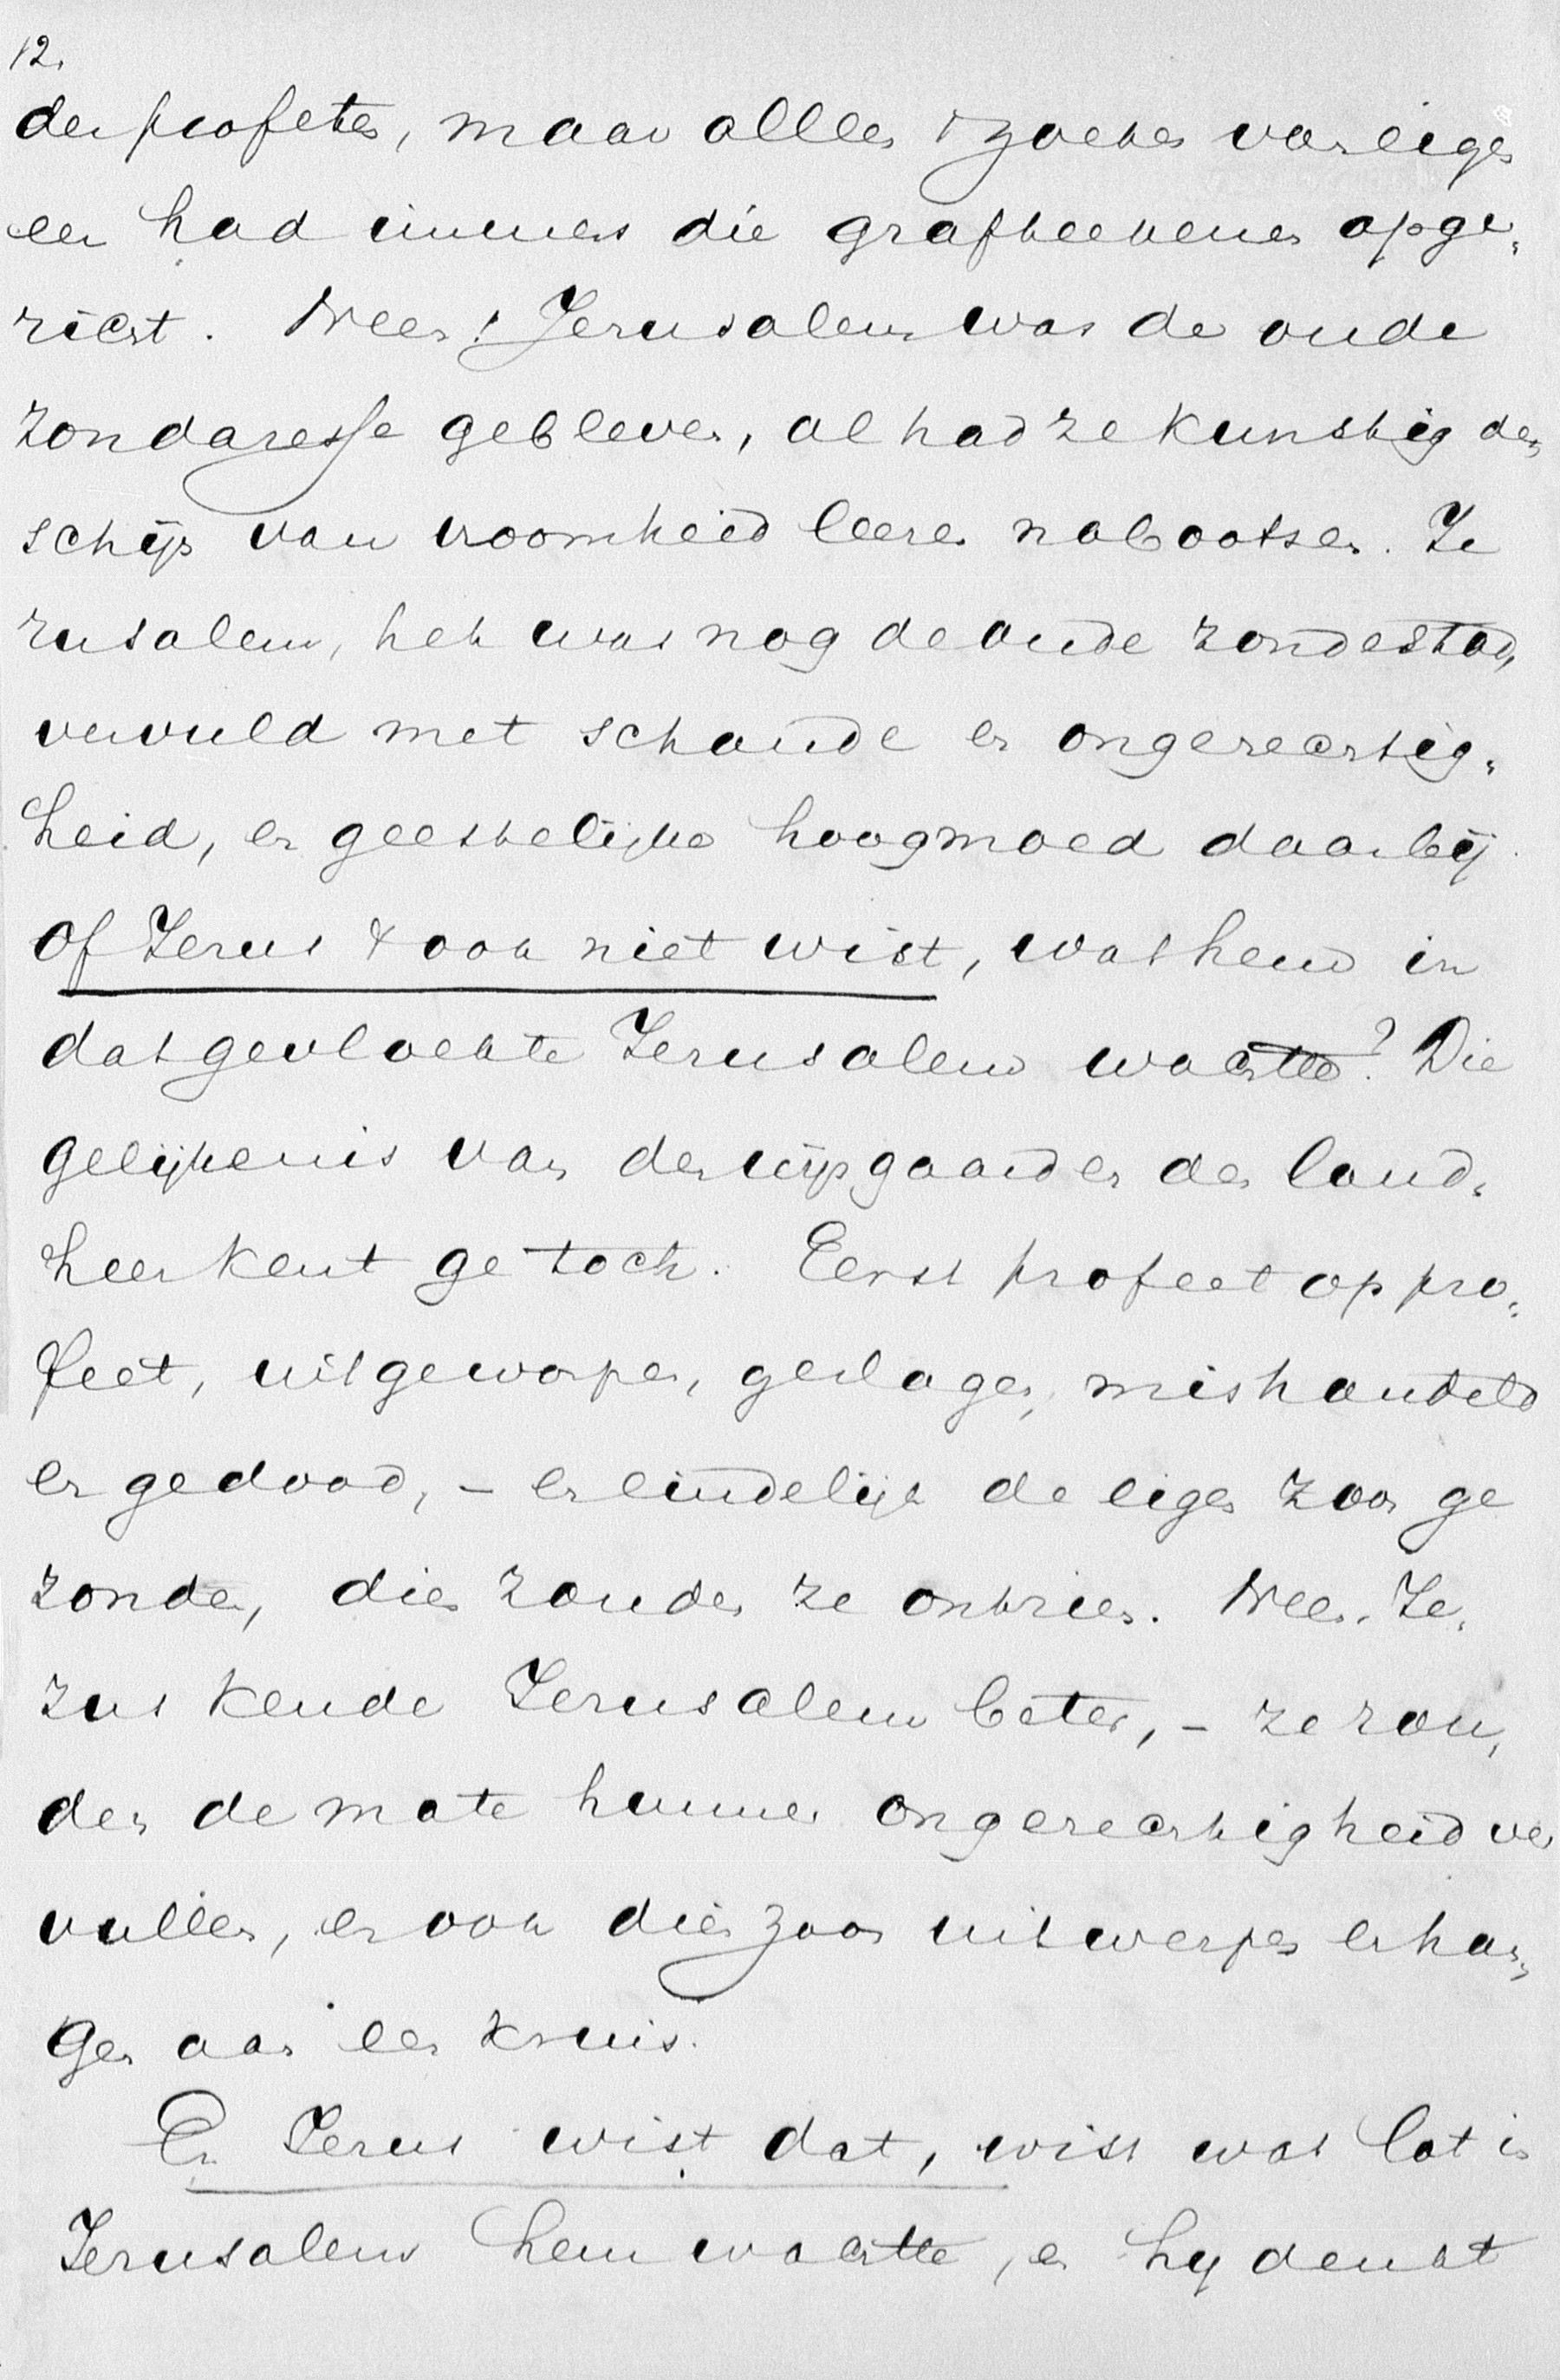 12.
der profeten, maar alleen 't zoeken van eigen
eer had immers die grafteekenen opge-
richt. Neen! Jerusalem was de oude
zondaresse gebleven, al had ze kunstig den
schijn van vroomheid leeren nabootsen. Je
rusalem, het was nog de oude zondestad,
vervuld met schande en ongerechtig-
heid, en geestelijke hoogmoed daarbij.
Of Jezus 't ook niet wist, wat hem in
dat gevloekte Jerusalem wachtte? Die
gelijkenis van den wijngaard en den land-
heer kent ge toch. Eerst profeet op pro-
feet, uitgeworpen, geslagen, mishandeld
en gedood, - en eindelijk de eigen zoon ge
zonden, dien zouden ze ontzien. Neen, Je-
zus kende Jerusalem beter, - ze zou-
den de mate hunner ongerechtigheid ver
vullen, en ook dien zoon uitwerpen en han-
gen aan een kruis.
En Jezus wist dat, wist wat lot in
Jerusalem hem wachtte, en hij denkt